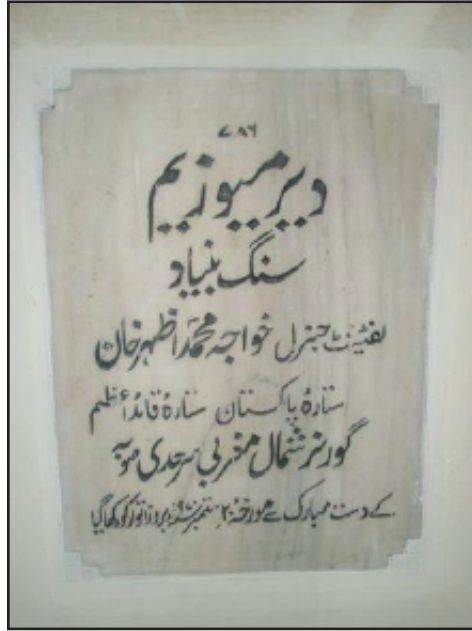 ۷۸۶
دیر میوزیم
سنگ بنیاد
لفٹیننٹ جنرل خواجہ محمد اظہر خان
ستارۂ پاکستان ستارۂ قائد اعظم
گورنر شمال مغربی سرحدی صوبہ
کے دست مبارک سے مورخہ ۲۰ ستمبر ۱۹۷۰ء بروز اتوار کو رکھا گیا